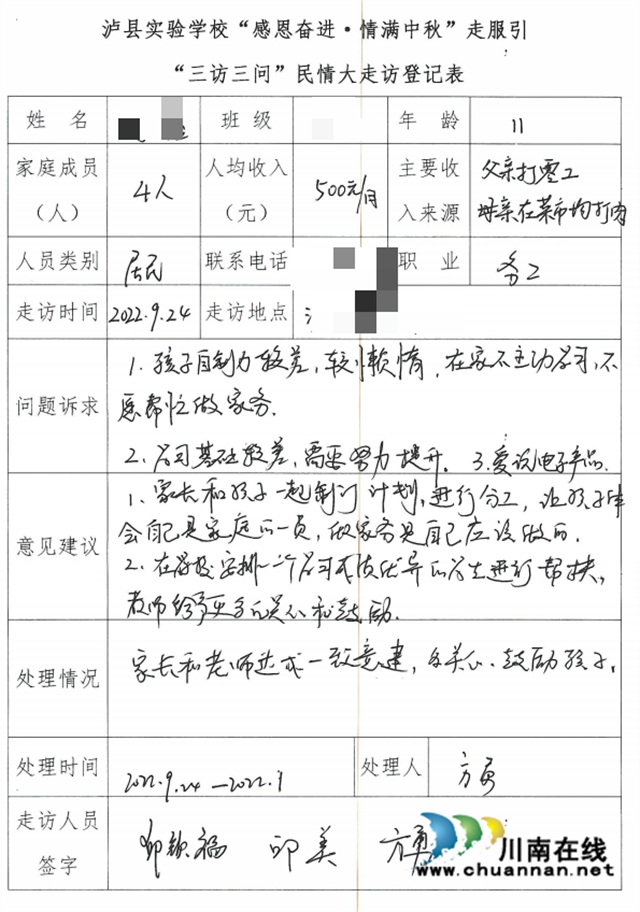 泸县实验学校“感恩奋进·情满中秋”走服引
“三访三问”民情大走访登记表
姓 名 班 级 年 龄 11
家庭成员（人） 4人 人均收入（元） 500元/月 主要收入来源 父亲打零工 母亲在菜市场打肉
人员类别 居民 联系电话 职 业 务工
走访时间 2022.9.24 走访地点
问题诉求
1. 孩子自制力较差，较懒惰，在家不主动学习，不
愿帮忙做家务.
2. 学习基础较差，需要努力提升. 3.爱玩电子产品.
意见建议
1、家长和孩子一起制订计划，进行分工，让孩子体
会自己是家庭的一员，做家务是自己应该做的.
2. 在学校安排一个学习成绩优异的学生进行帮扶，
教师给予更多的关心和鼓励.
处理情况
家长和老师达成一致意建，多关心、鼓励孩子.
处理时间 2022.9.24—2022.9 处理人
走访人员
签字
川南在线
www.chuannan.net